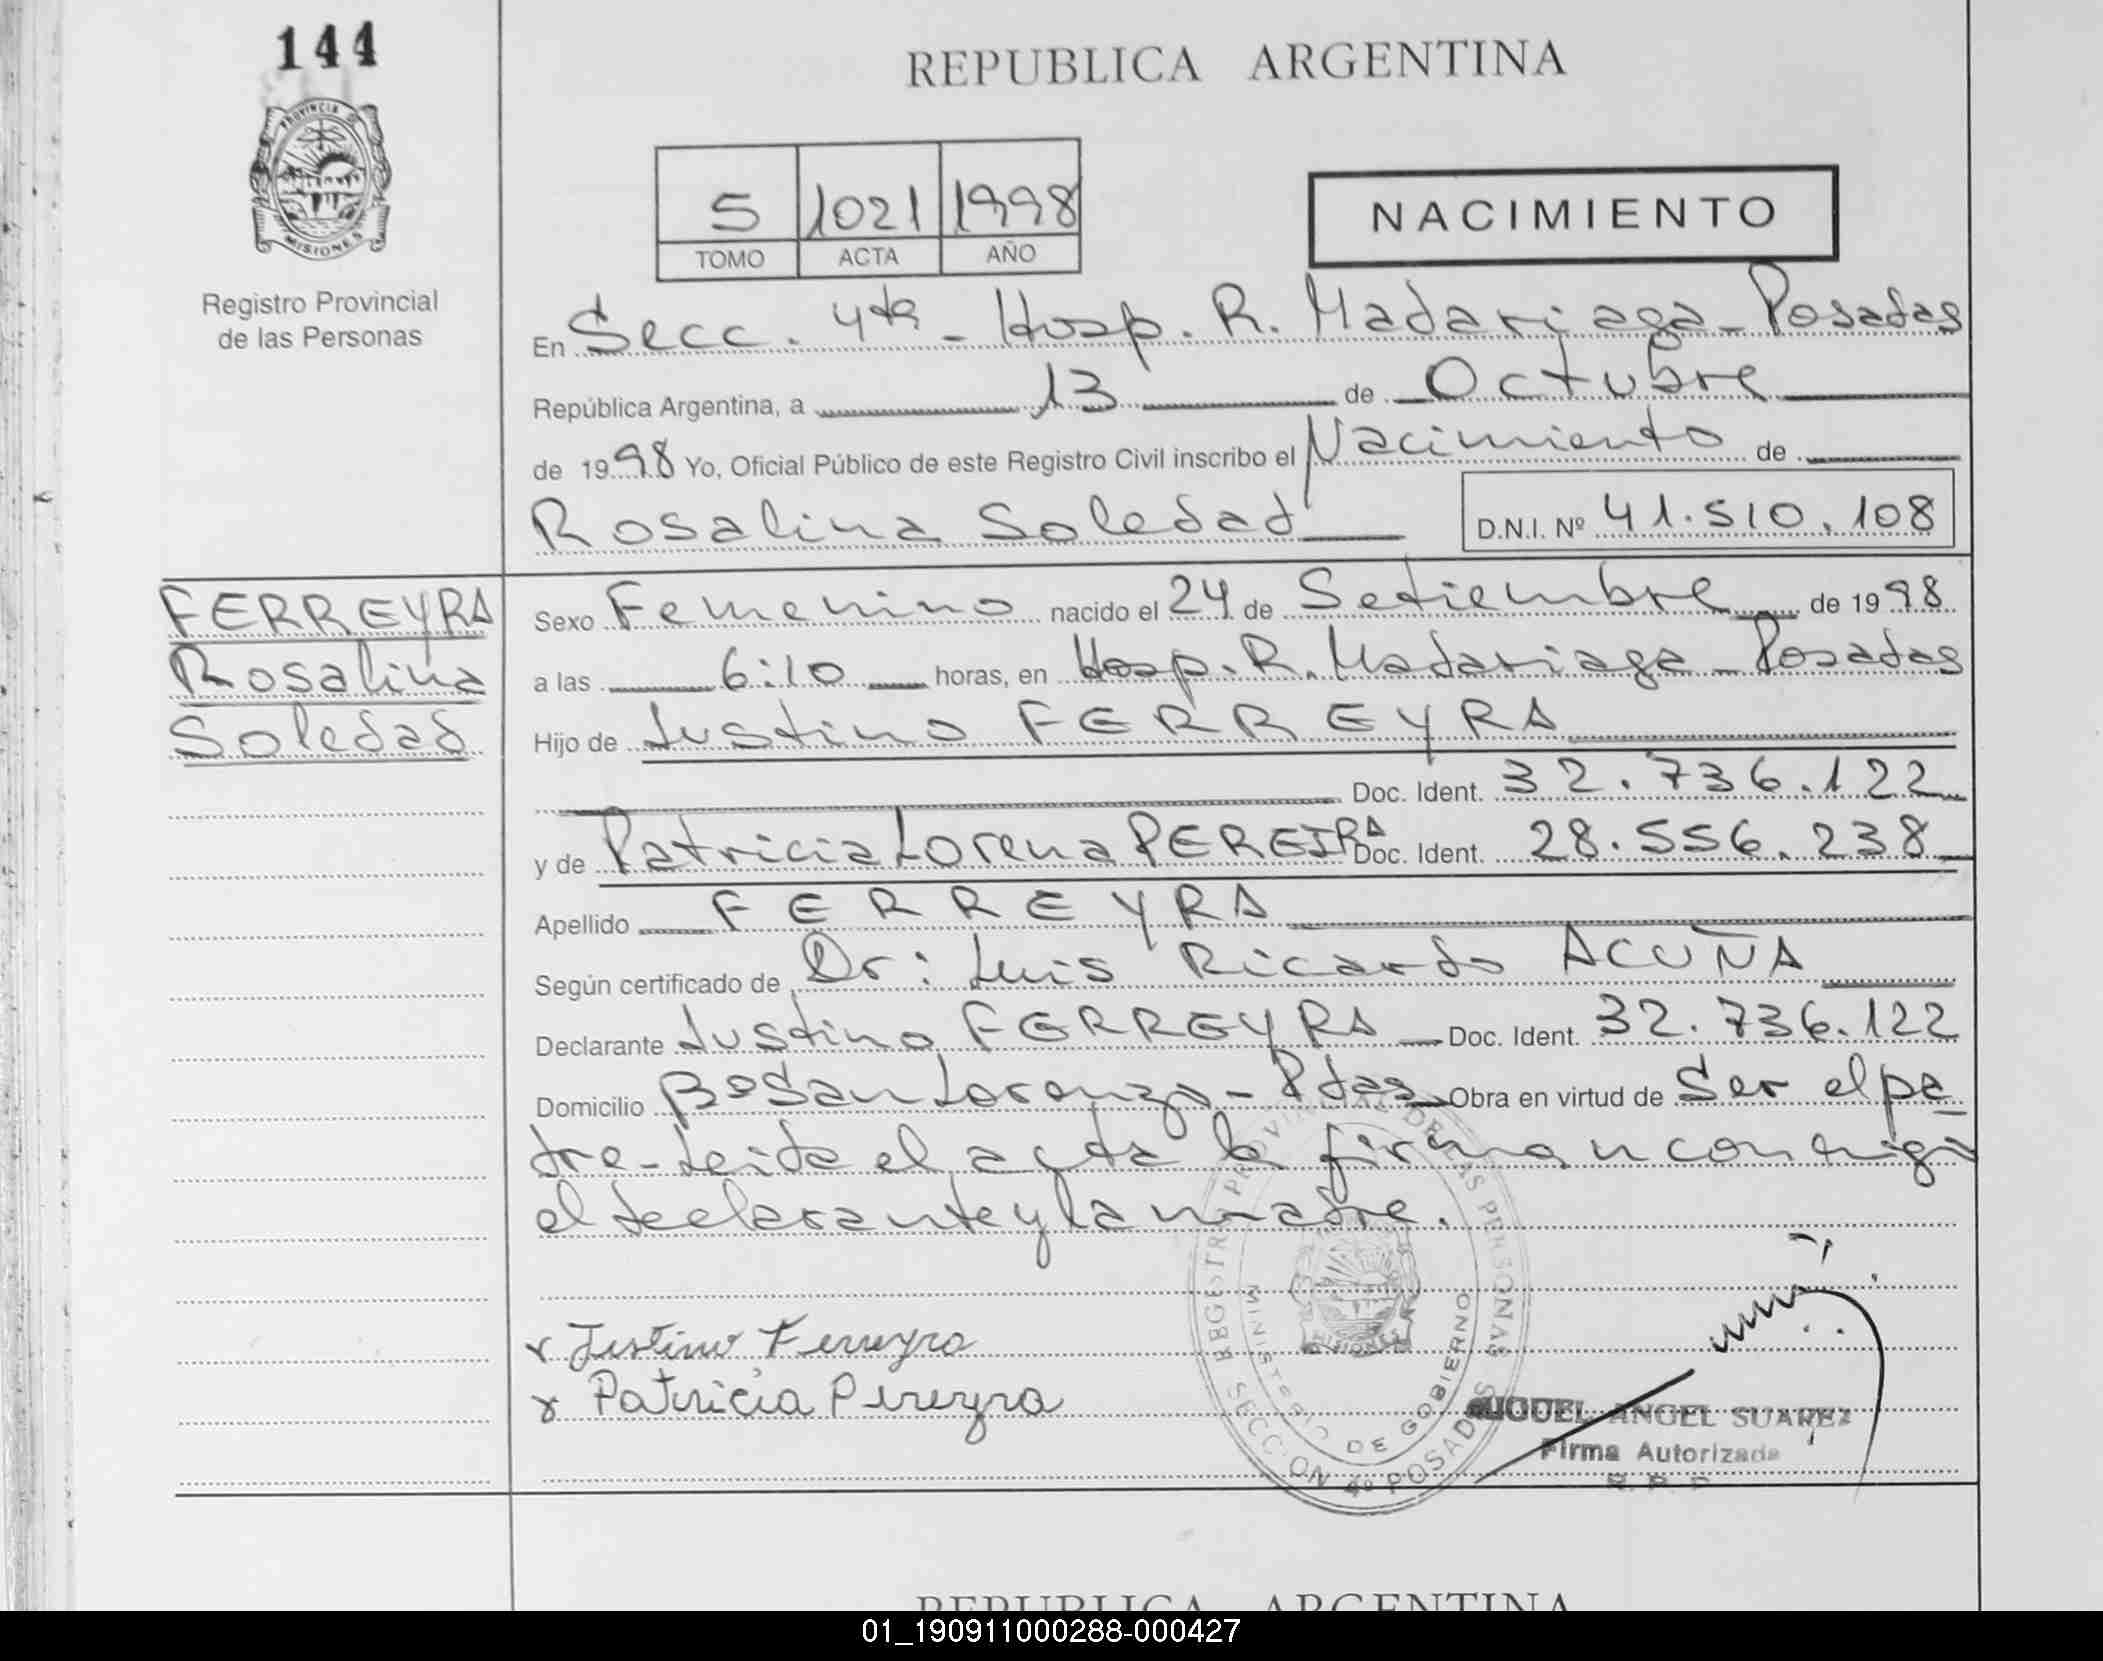 144
REPUBLICA ARGENTINA
PROVINCIA DE
MISIONES
Registro Provincial
de las Personas
5 1021 1998
TOMO ACTA AÑO
NACIMIENTO
En Secc. 4ta - Hosp. R. Madariaga - Posadas
República Argentina, a 13 de Octubre
de 1998 Yo, Oficial Público de este Registro Civil inscribo el Nacimiento de
Rosalina Soledad D.N.I. Nº 41.510.108
FERREYRA
Rosalina
Soledad
Sexo Femenino nacido el 24 de Setiembre de 1998
a las 6:10 horas, en Hosp. R. Madariaga - Posadas
Hijo de Justino FERREYRA
Doc. Ident. 32.736.122
y de Patricia Lorena PEREIRA Doc. Ident. 28.556.238
Apellido FERREYRA
Según certificado de Dr: Luis Ricardo ACUÑA
Declarante Justino FERREYRA Doc. Ident. 32.736.122
Domicilio Bº San Lorenzo - Pdas Obra en virtud de Ser el pa
dre - Leída el acta la firman conmigo
el declarante y la madre.
x Justino Ferreyra
x Patricia Pereyra
REGISTRO PROVINCIAL DE LAS PERSONAS
MINISTERIO DE GOBIERNO
MISIONES
SECCION 4º POSADAS
MIGUEL ANGEL SUAREZ
Firma Autorizada
REPUBLICA ARGENTINA
01_190911000288-000427